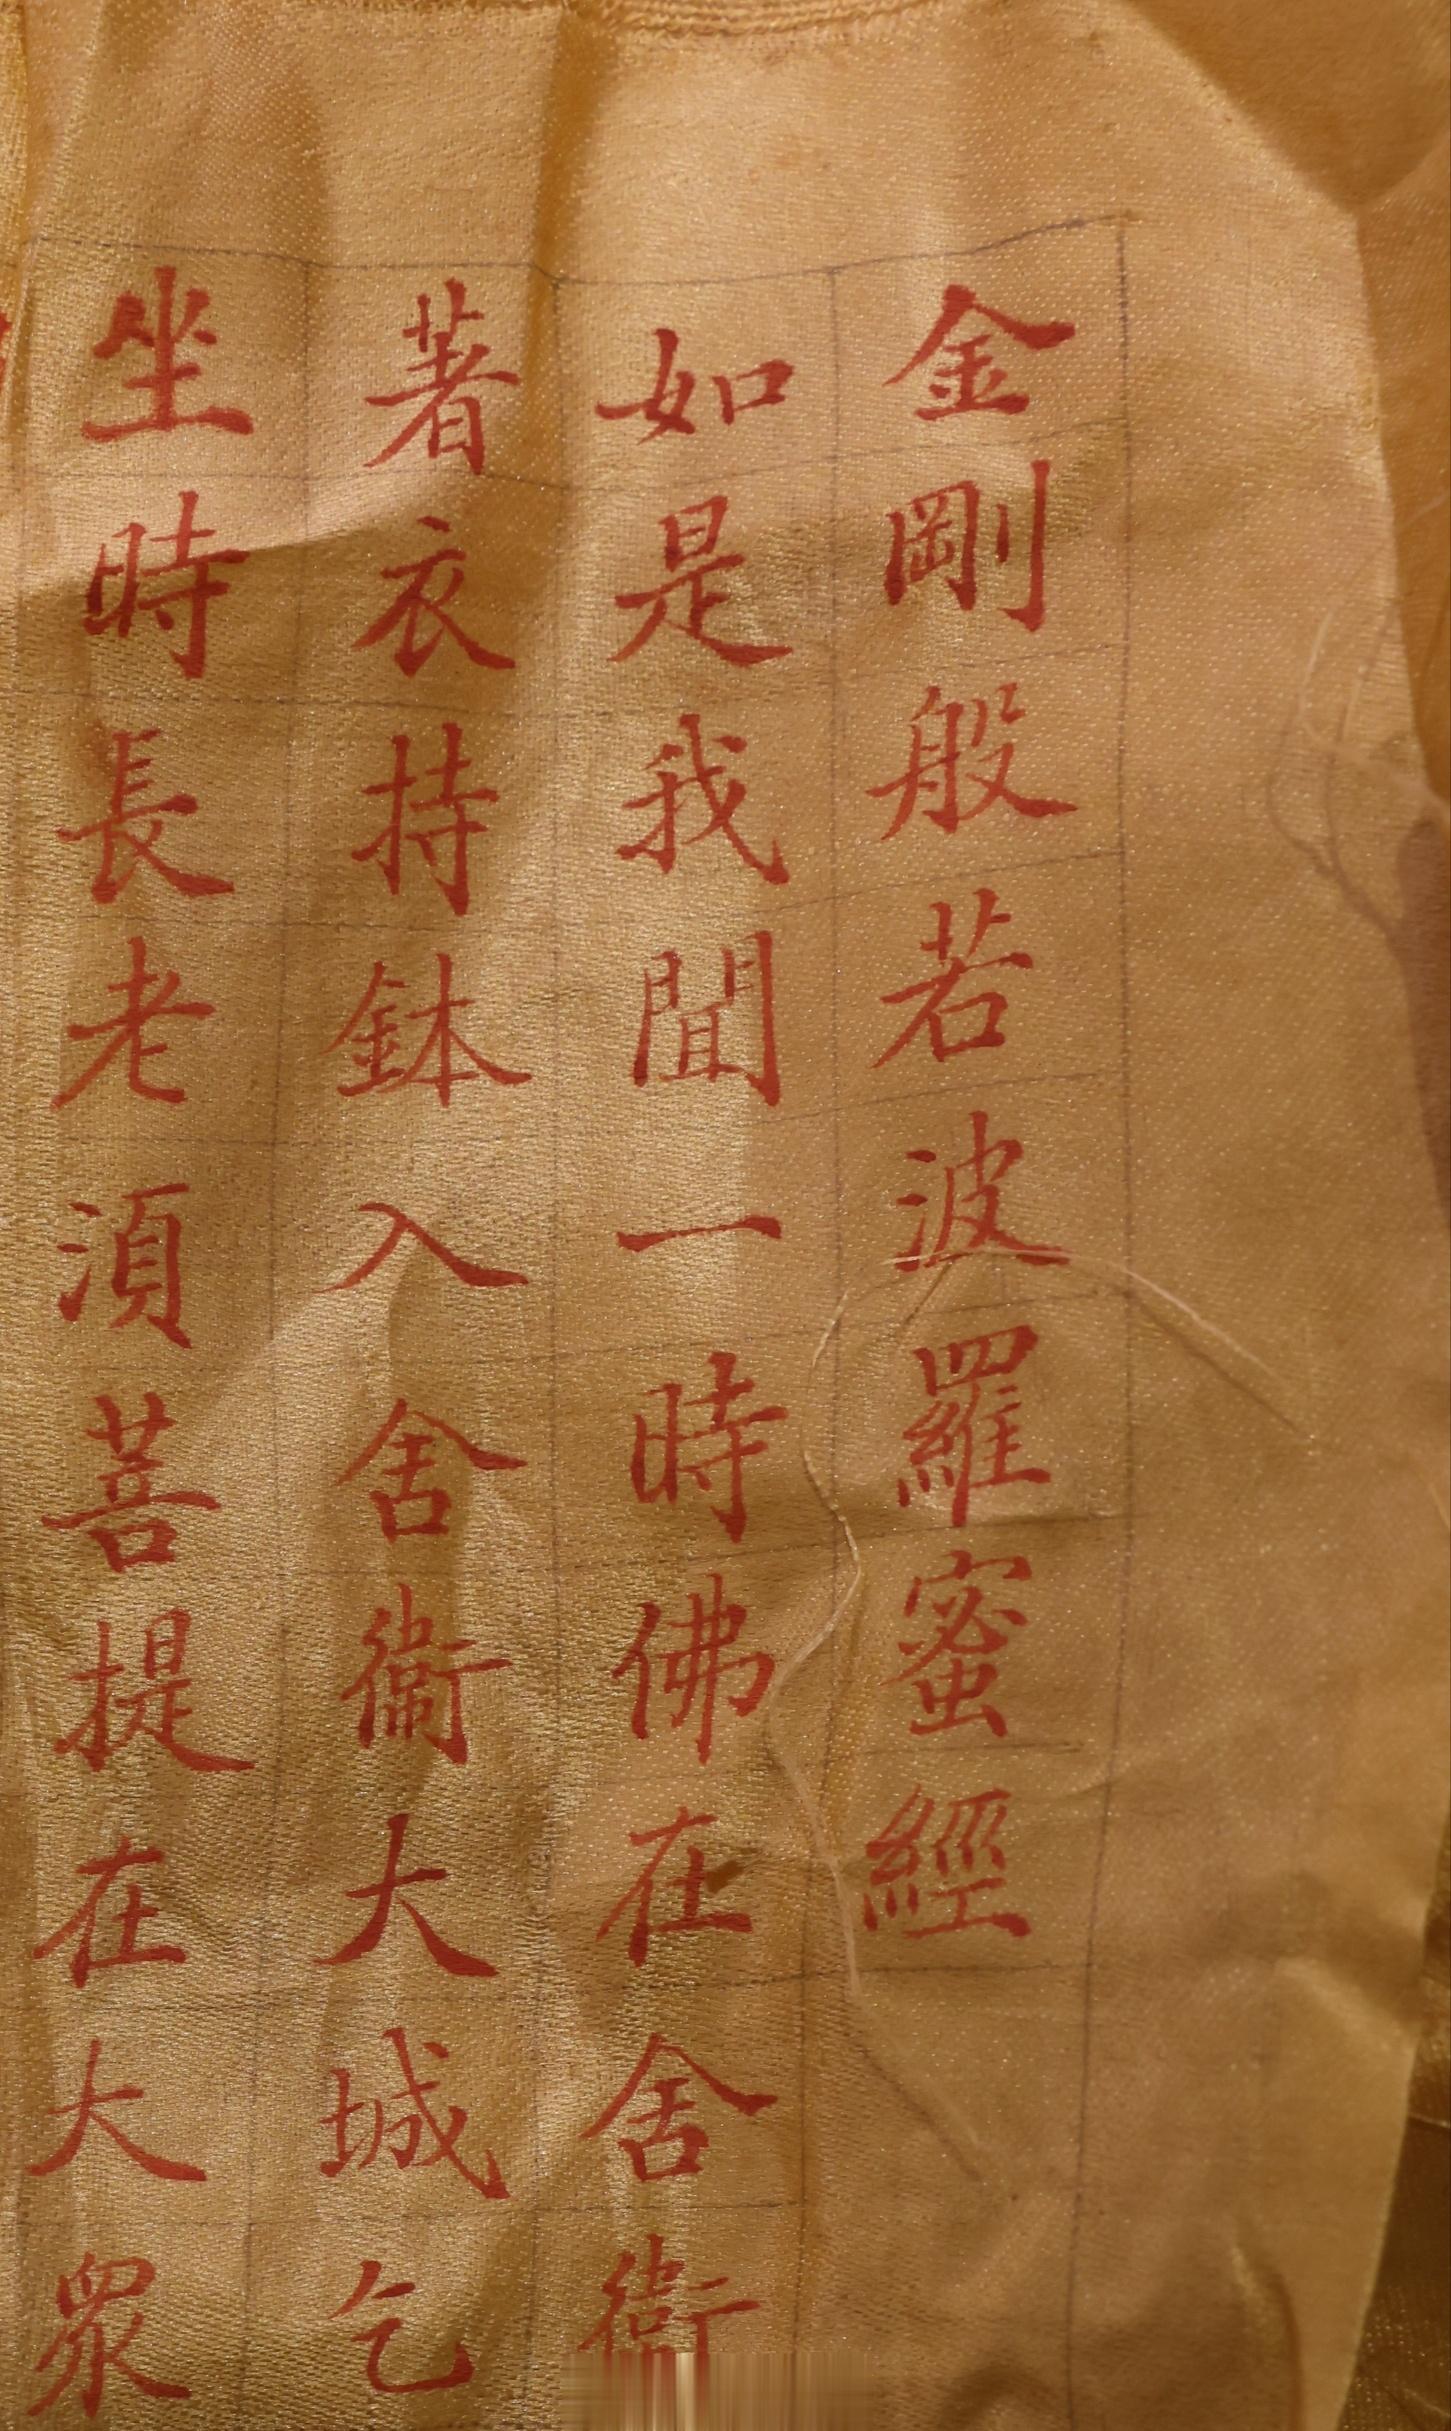 金剛般若波羅蜜經
如是我聞一時佛在舍衛
著衣持鉢入舍衛大城乞
坐時長老湏菩提在大眾